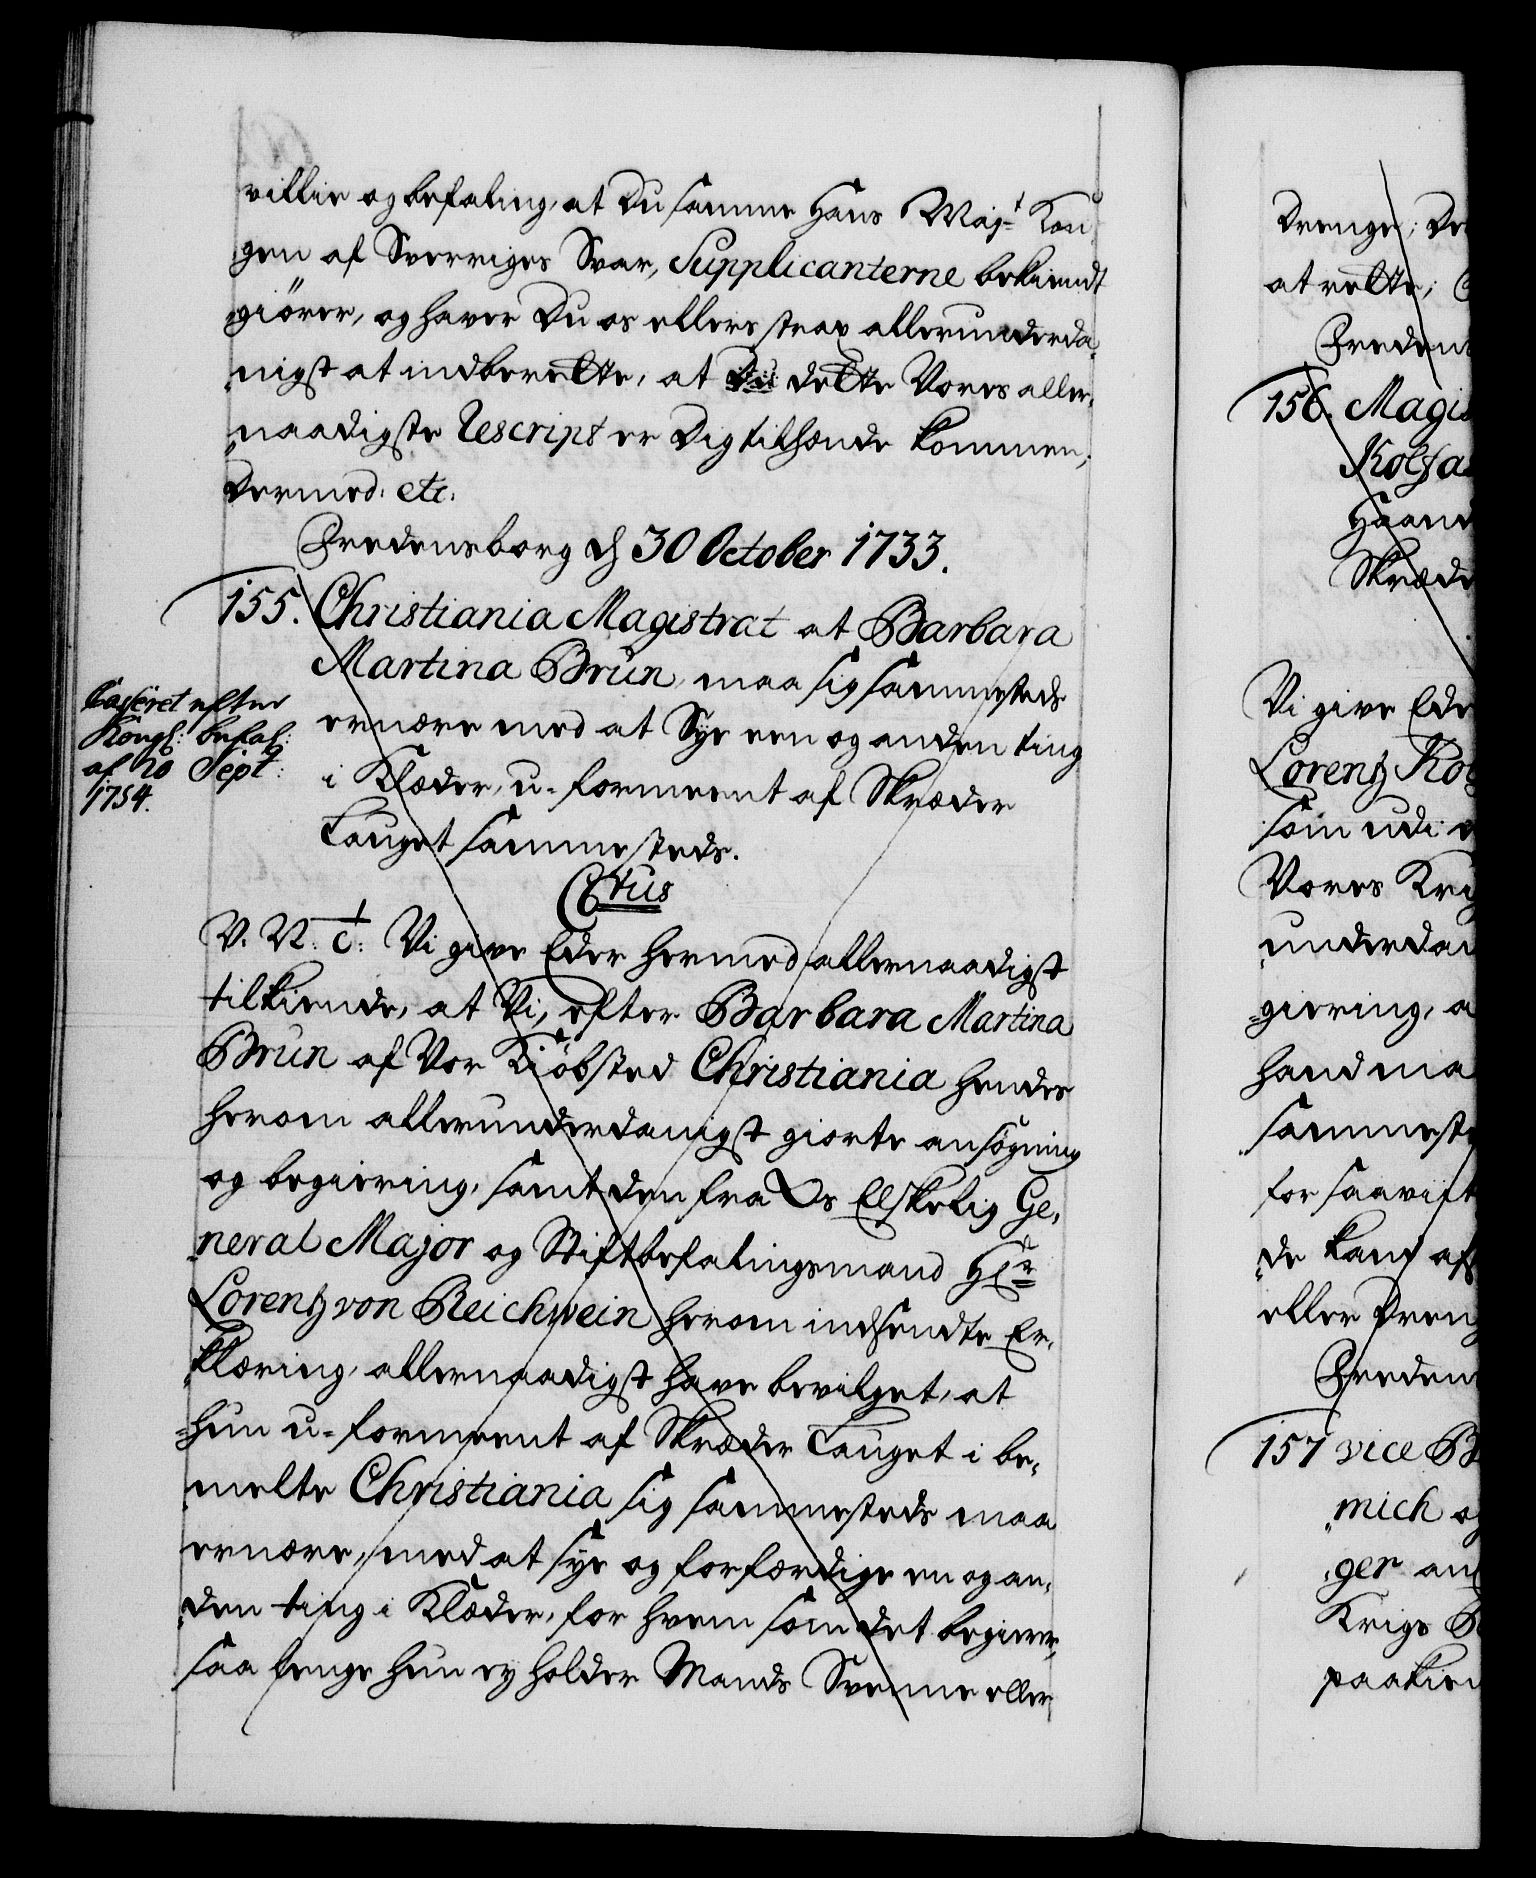 villie og befaling, at Du samme Hans Maj.t Kon-
gen af Sverriges Svar, Supplicanterne bekiendt
giører, og haver Du os ellers strax allerunderda-
nigst at indberette, at Du dette Vores aller-
naadigste Rescript er Dig tilhænde kommen,
Dermed: etc:
Fredensborg d 30 October 1733.
155. Christiania Magistrat at Barbara
Martina Brun, maa sig sammesteds
ernære med at Sye een og anden ting
i Klæder, u-formeent af Skræder
Lauget sammesteds.
Casseret efter
Kongl: befal:
af 20 Sept:
1754.
C6tus
V. N. C: Vi give Eder hermed allernaadigst
tilkiende, at Vi, efter Barbara Martina
Brun af Vor Kiöbsted Christiania hendes
herom allerunderdanigst giorte ansøgning
og begiering, samt den fra Os Elskelig Ge-
neral Major og Stiftbefalingsmand Hr
Lorentz von Reichwein herom indsendte Er-
klæring, allernaadigst have bevilget, at
hun u-formeent af Skræder Lauget i be-
melte Christiania sig sammesteds maa
ernære, med at sye og forfærdige en og an-
den ting i Klæder, for hvem som det begierer,
saa længe hun ey holder Mands Svenne eller
Drenge; De
at rette;
Freden
156. Magis
Kolfa
Haand
Skræde
Vi give Ede
Lorentz Ko
som udi
Vores Krig
underdan
giering, a
hand ma
sammeste
for saavit
de kand af
eller Dreng
Freden
157 vice B
mich og
ger an
Krigs
paakien